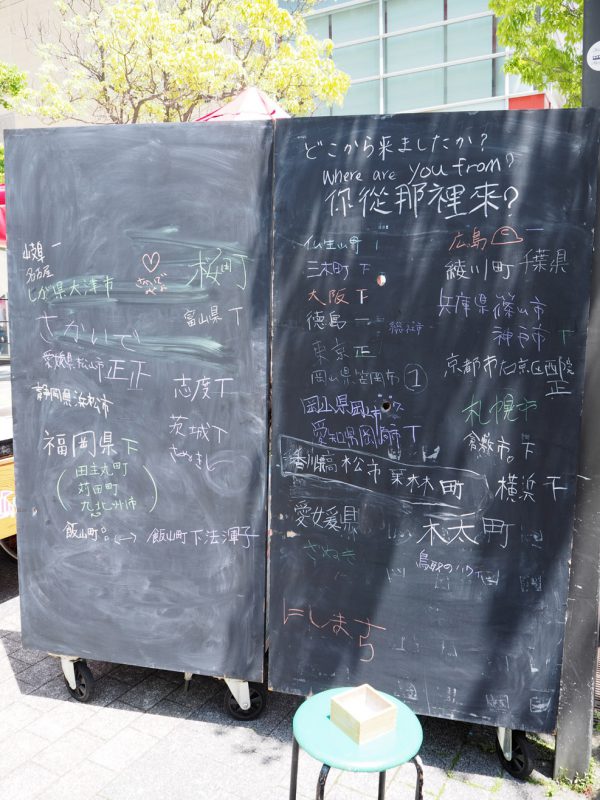 岐阜 一
名古屋
しが県大津市
さかいで
愛媛県松山市 正正
静岡県浜松市
福岡県 下
田主丸町
苅田町
北九州市
飯山町
飯山町下法渾子
桜町
富山県 下
志度 下
茨城 下
どこから来ましたか?
where are you from?
你從那裡來?
仏生山町
三木町 下
大阪 下
徳島 一
東京 正
岡山県笠岡市 ①
岡山県岡山市
愛知県岡崎市 下
香川県高松市 栗林町
愛媛県
さぬき
にしまち
広島 一
綾川町 千葉県
兵庫県篠山市
神戸市 下
京都市右京区西院
正
札幌市
倉敷市 下
横浜 下